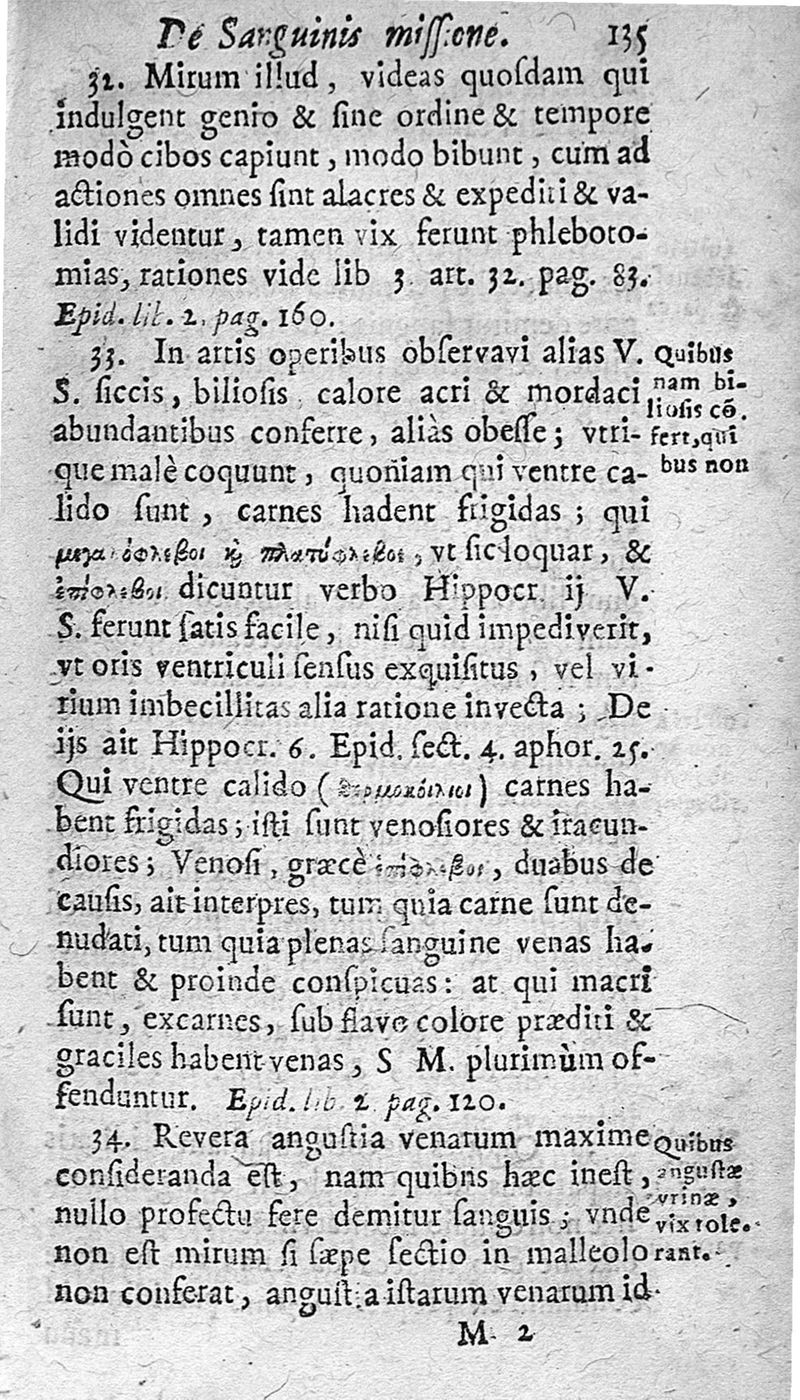 De Sanguinis missione. 135
32. Mirum illud, videas quoſdam qui
indulgent genio & ſine ordine & tempore
modò cibos capiunt, modo bibunt, cum ad
actiones omnes ſint alacres & expediti & va-
lidi videntur, tamen vix ferunt phleboto-
mias, rationes vide lib 3. art. 32. pag. 83.
Epid. lib. 2. pag. 160.
33. In artis operibus obſervavi alias V.
S. ſiccis, bilioſis calore acri & mordaci
abundantibus conferre, aliàs obeſſe; vtri-
que malè coquunt, quoniam qui ventre ca-
lido ſunt, carnes hadent frigidas; qui
μεγαλόφλεβοι ϗ πλατύφλεβοι, vt ſic loquar, &
ἐπίφλεβοι dicuntur verbo Hippocr. ij V.
S. ferunt ſatis facile, niſi quid impediverit,
vt oris ventriculi ſenſus exquiſitus, vel vi-
rium imbecillitas alia ratione invecta; De
ijs ait Hippocr. 6. Epid. ſect. 4. aphor. 25.
Qui ventre calido (θερμοκοίλιοι) carnes ha-
bent frigidas; iſti ſunt venoſiores & iracun-
diores; Venoſi, græcè ἐπίφλεβοι, duabus de
cauſis, ait interpres, tum quia carne ſunt de-
nudati, tum quia plenas ſanguine venas ha-
bent & proinde conſpicuas: at qui macri
ſunt, excarnes, ſub flavo colore præditi &
graciles habent venas, S M. plurimùm of-
fenduntur. Epid. lib. 2. pag. 120.
34. Revera anguſtia venarum maxime
conſideranda eſt, nam quibns hæc ineſt,
nullo profectu fere demitur ſanguis; vnde
non eſt mirum ſi ſæpe ſectio in malleolo
non conferat, anguſtia iſtarum venarum id
M 2
Quibus
nam bi-
lioſis cō.
fert, qui
bus non
Quibus
anguſtæ
vrinæ,
vix tole.
rant.